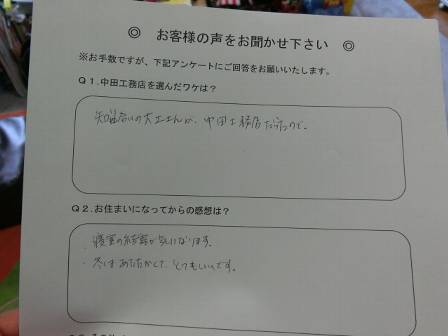 ◎ お客様の声をお聞かせ下さい ◎
※お手数ですが、下記アンケートにご回答をお願いいたします。
Q1.中田工務店を選んだワケは?
知り合いの大工さんが、中田工務店だったので。
Q2.お住まいになってからの感想は?
・寝室の結露が気になります。
・冬はあたたかくて、とてもいいです。